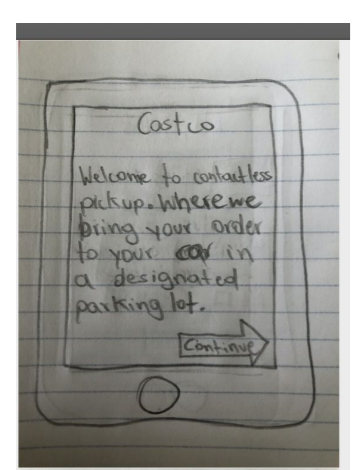 Costco
Welcome to contactless
pickup. Where we
bring your order
to your car in
a designated
parking lot.
Continue